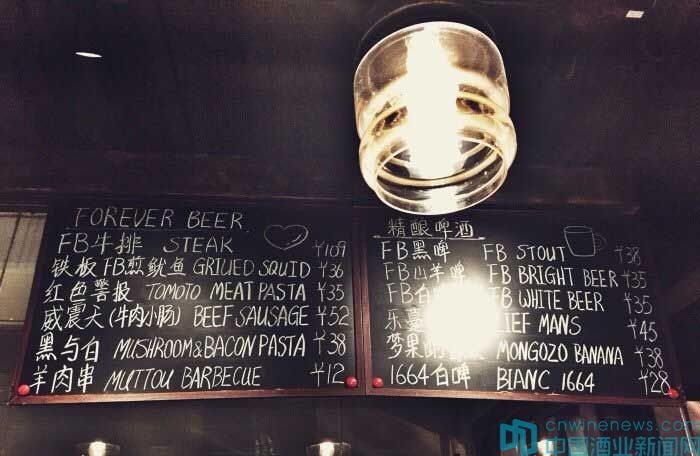 FOREVER BEER
FB牛排 STEAK ¥109
铁板FB煎鱿鱼 GRILLED SQUID ¥36
红色警报 TOMOTO MEAT PASTA ¥35
威震天(牛肉小肠) BEEF SAUSAGE ¥52
黑与白 MUSHROOM&BACON PASTA ¥38
羊肉串 MUTTOU BARBECUE ¥12
精酿啤酒
FB黑啤 FB STOUT ¥38
FB山羊啤 FB BRIGHT BEER ¥35
FB白 FB WHITE BEER ¥35
乐蔓 LIEF MANS ¥45
梦果 MONGOZO BANANA ¥38
1664白啤 BIANC 1664 ¥28
cnwinenews.com
中国酒业新闻网